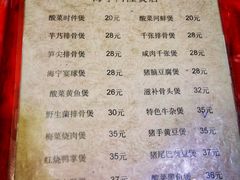 酸菜时件煲 20元 酸菜河鲜煲 20元
芋艿排骨煲 28元 千张排骨煲 28元
笋尖排骨煲 28元 咸肉千张煲 28元
海宁宴球煲 28元 猪脑豆腐煲 28元
酸菜黄鱼煲 28元 滋补骨头煲 35元
野生菌排骨煲 30元 特色牛杂煲 35元
梅菜烧肉煲 35元 猪手黄豆煲 35元
红烧鸭掌煲 35元 猪尾巴煲 35元
35元